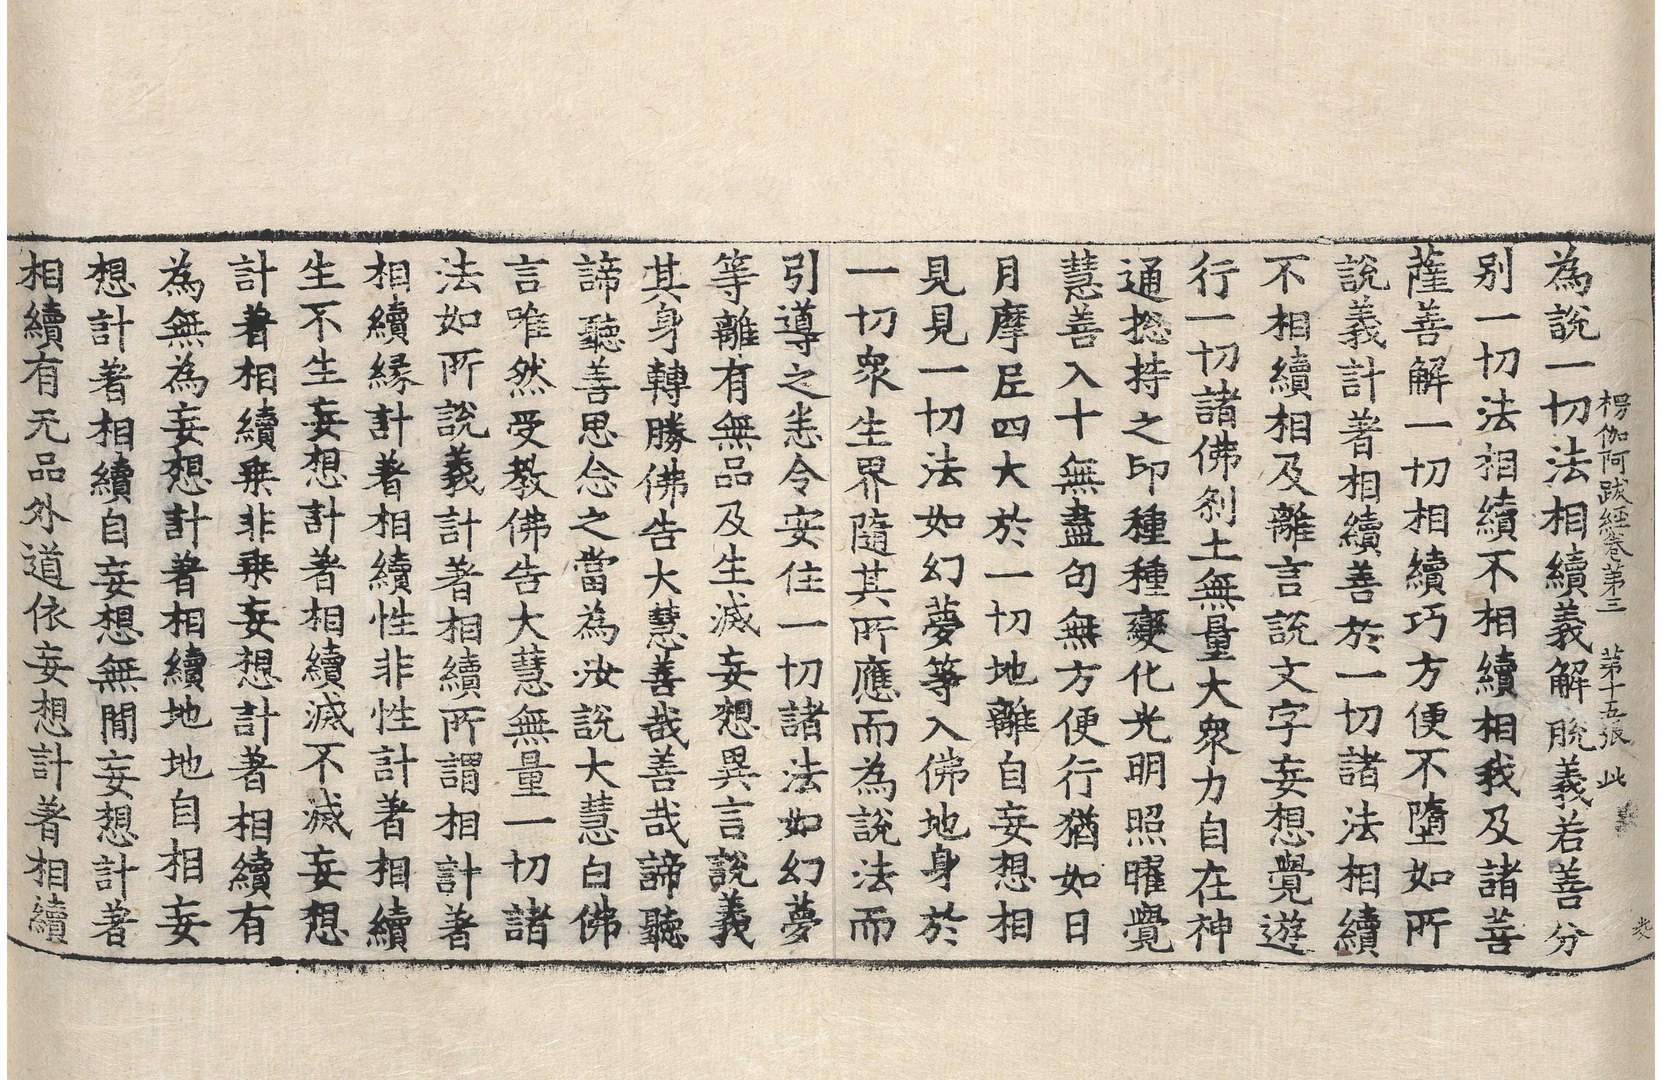 楞伽阿跋経巻苐三 苐十五張 此
為說一切法相續義解脫義若善分
別一切法相續不相續相我及諸善
薩善解一切相續巧方便不墮如所
說義計著相續善於一切諸法相續
不相續相及離言說文字妄想覺遊
行一切諸佛刹土無量大衆力自在神
通捴持之印種種變化光明照曜覺
慧善入十無盡句無方便行猶如日
月摩尼四大於一切地離自妄想相
見見一切法如幻夢等入佛地身於
一切衆生界隨其所應而為說法而
引導之悉令安住一切諸法如幻夢
等離有無品及生滅妄想異言說義
其身轉勝佛告大慧善哉善哉諦聽
諦聽善思念之當為汝說大慧白佛
言唯然受教佛告大慧無量一切諸
法如所說義計著相續所謂相計著
相續緣計著相續性非性計著相續
生不生妄想計著相續滅不滅妄想
計著相續乗非乗妄想計著相續有
為無為妄想計著相續地地自相妄
想計著相續自妄想無閒妄想計著
相續有无品外道依妄想計著相續